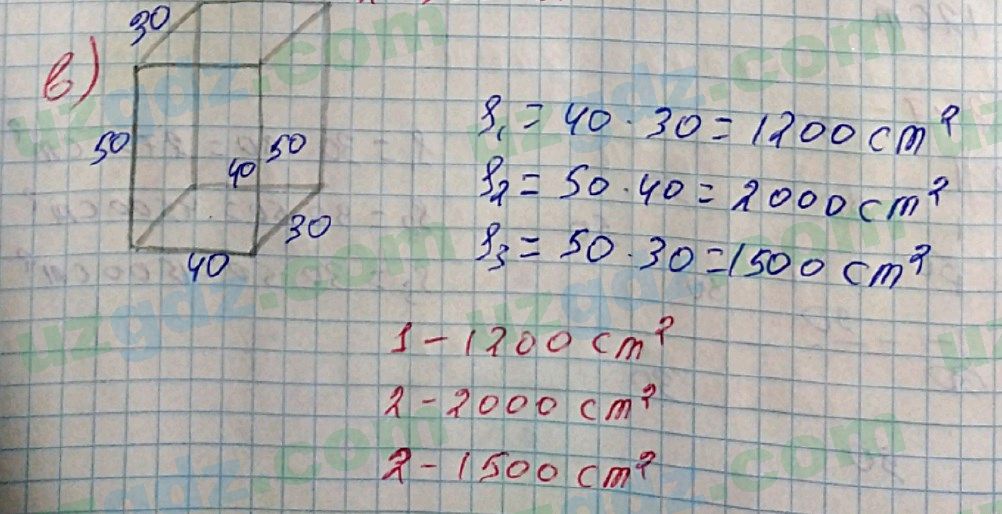 в)
30
50
50
40
30
40
S₁ = 40 · 30 = 1200 cm²
S₂ = 50 · 40 = 2000 cm²
S₃ = 50 · 30 = 1500 cm²
1 - 1200 cm²
2 - 2000 cm²
2 - 1500 cm²
uzgdz.com
uzgdz.com
uzgdz.com
uzgdz.com
uzgdz.com